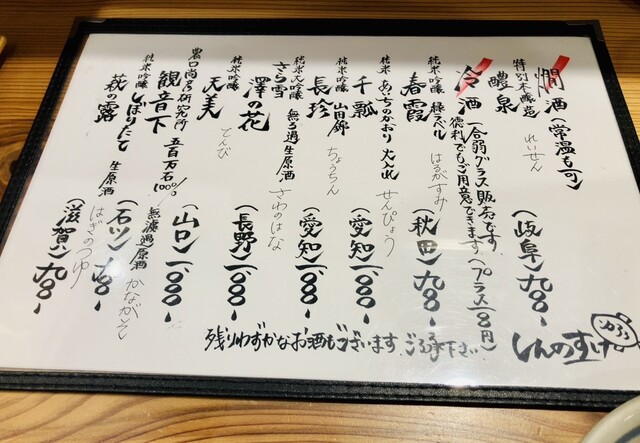 燗酒（常温も可）
特別本醸造
醴泉 れいせん （岐阜）九〇〇-
冷酒 一合弱グラス販売です
徳利でもご用意できます（プラス一〇〇円）
純米吟醸 緑ラベル
春霞 はるがすみ （秋田）九〇〇-
純米 あいちのかおり 火入れ
千瓢 せんぴょう （愛知）一、〇〇〇-
純米吟醸 山田錦
長珍 ちょうちん （愛知）一、〇〇〇-
純米大吟醸 無ろ過生原酒
さら雪
澤の花 さわのはな （長野）一、〇〇〇-
純米吟醸
天美 てんび （山口）一、〇〇〇-
農口尚彦研究所 五百万石100% 無濾過原酒
観音下 かながそ （石川）九〇〇-
純米吟醸 しぼりたて 生原酒
萩の露 はぎのつゆ （滋賀）九〇〇-
残りわずかなお酒もございます。ご容赦下さい
しんのすけ